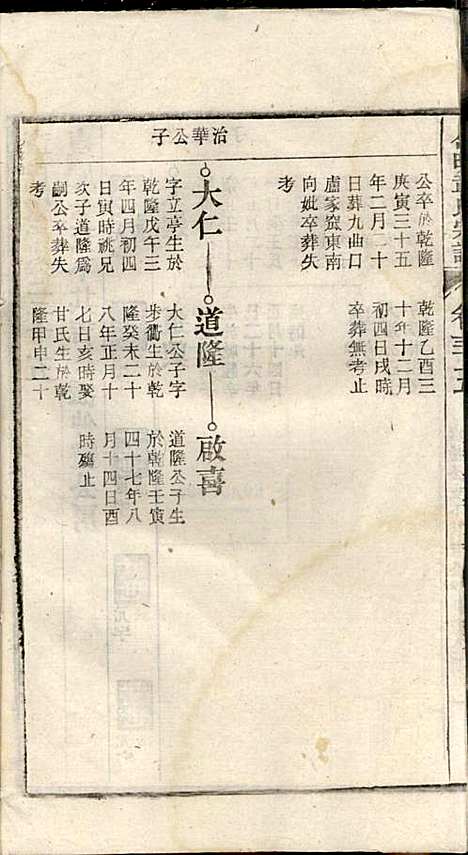 公卒於乾隆
庚寅三十五
年二月二十
日葬九曲口
盧家窰東南
向妣卒葬失
考
乾隆乙酉三
十年十二月
初四日戌時
卒葬無考止
治華公子
大仁
字立亭生於
乾隆戊午三
年四月初四
日寅時祧兄
次子道隆爲
嗣公卒葬失
考
道隆
大仁公子字
步衢生於乾
隆癸未二十
八年正月十
七日亥時娶
甘氏生於乾
隆甲申二十
啟喜
道隆公子生
於乾隆壬寅
四十七年八
月十四日酉
時殤止